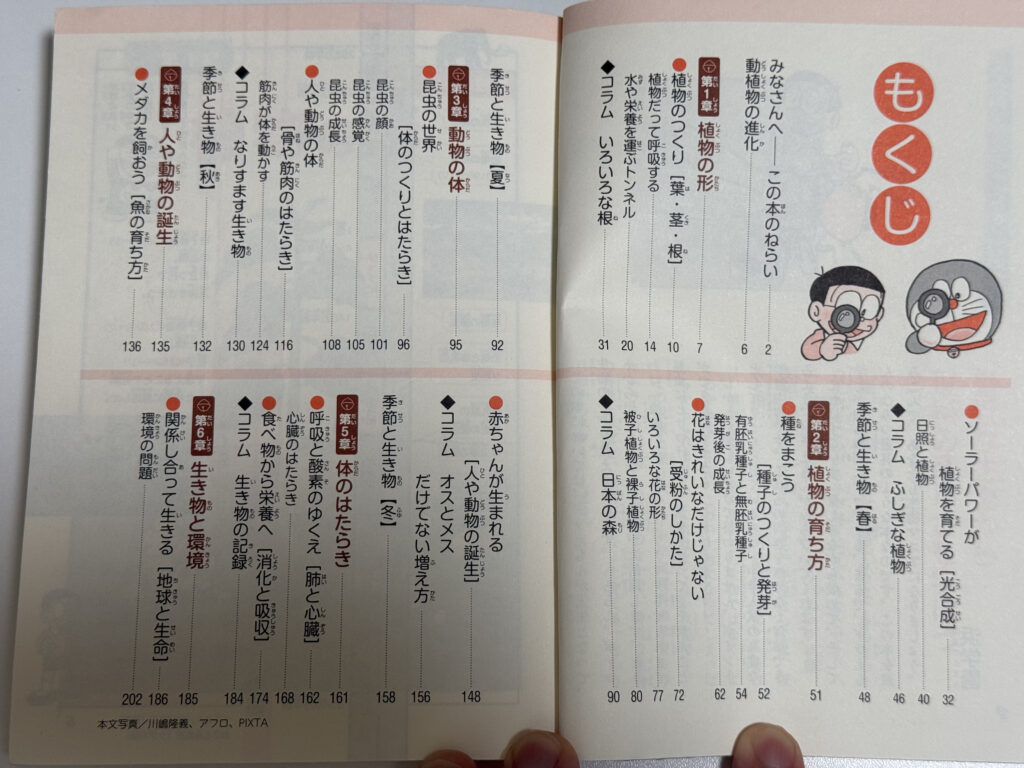 もくじ
みなさんへ――この本のねらい 2
動植物の進化 6
第1章 植物の形 7
●植物のつくり[葉・茎・根] 10
植物だって呼吸する 14
水や栄養を運ぶトンネル 20
◆コラム いろいろな根 31
●ソーラーパワーが
植物を育てる[光合成] 32
日照と植物 40
◆コラム ふしぎな植物 46
季節と生き物【春】 48
第2章 植物の育ち方 51
●種をまこう
[種子のつくりと発芽] 52
有胚乳種子と無胚乳種子 54
発芽後の成長 62
●花はきれいなだけじゃない
[受粉のしかた] 72
いろいろな花の形 77
被子植物と裸子植物 80
◆コラム 日本の森 90
季節と生き物【夏】 92
第3章 動物の体 95
●昆虫の世界
[体のつくりとはたらき] 96
昆虫の顔 101
昆虫の感覚 105
昆虫の成長 108
●人や動物の体
[骨や筋肉のはたらき] 116
筋肉が体を動かす 124
◆コラム なりすます生き物 130
季節と生き物【秋】 132
第4章 人や動物の誕生 135
●メダカを飼おう[魚の育ち方] 136
●赤ちゃんが生まれる
[人や動物の誕生] 148
◆コラム オスとメス
だけてない増え方 156
季節と生き物【冬】 158
第5章 体のはたらき 161
●呼吸と酸素のゆくえ[肺と心臓] 162
心臓のはたらき 168
●食べ物から栄養へ[消化と吸収] 174
◆コラム 生き物の記録 184
第6章 生き物と環境 185
●関係し合って生きる[地球と生命] 186
環境の問題 202
本文写真/川嶋隆義、アフロ、PIXTA